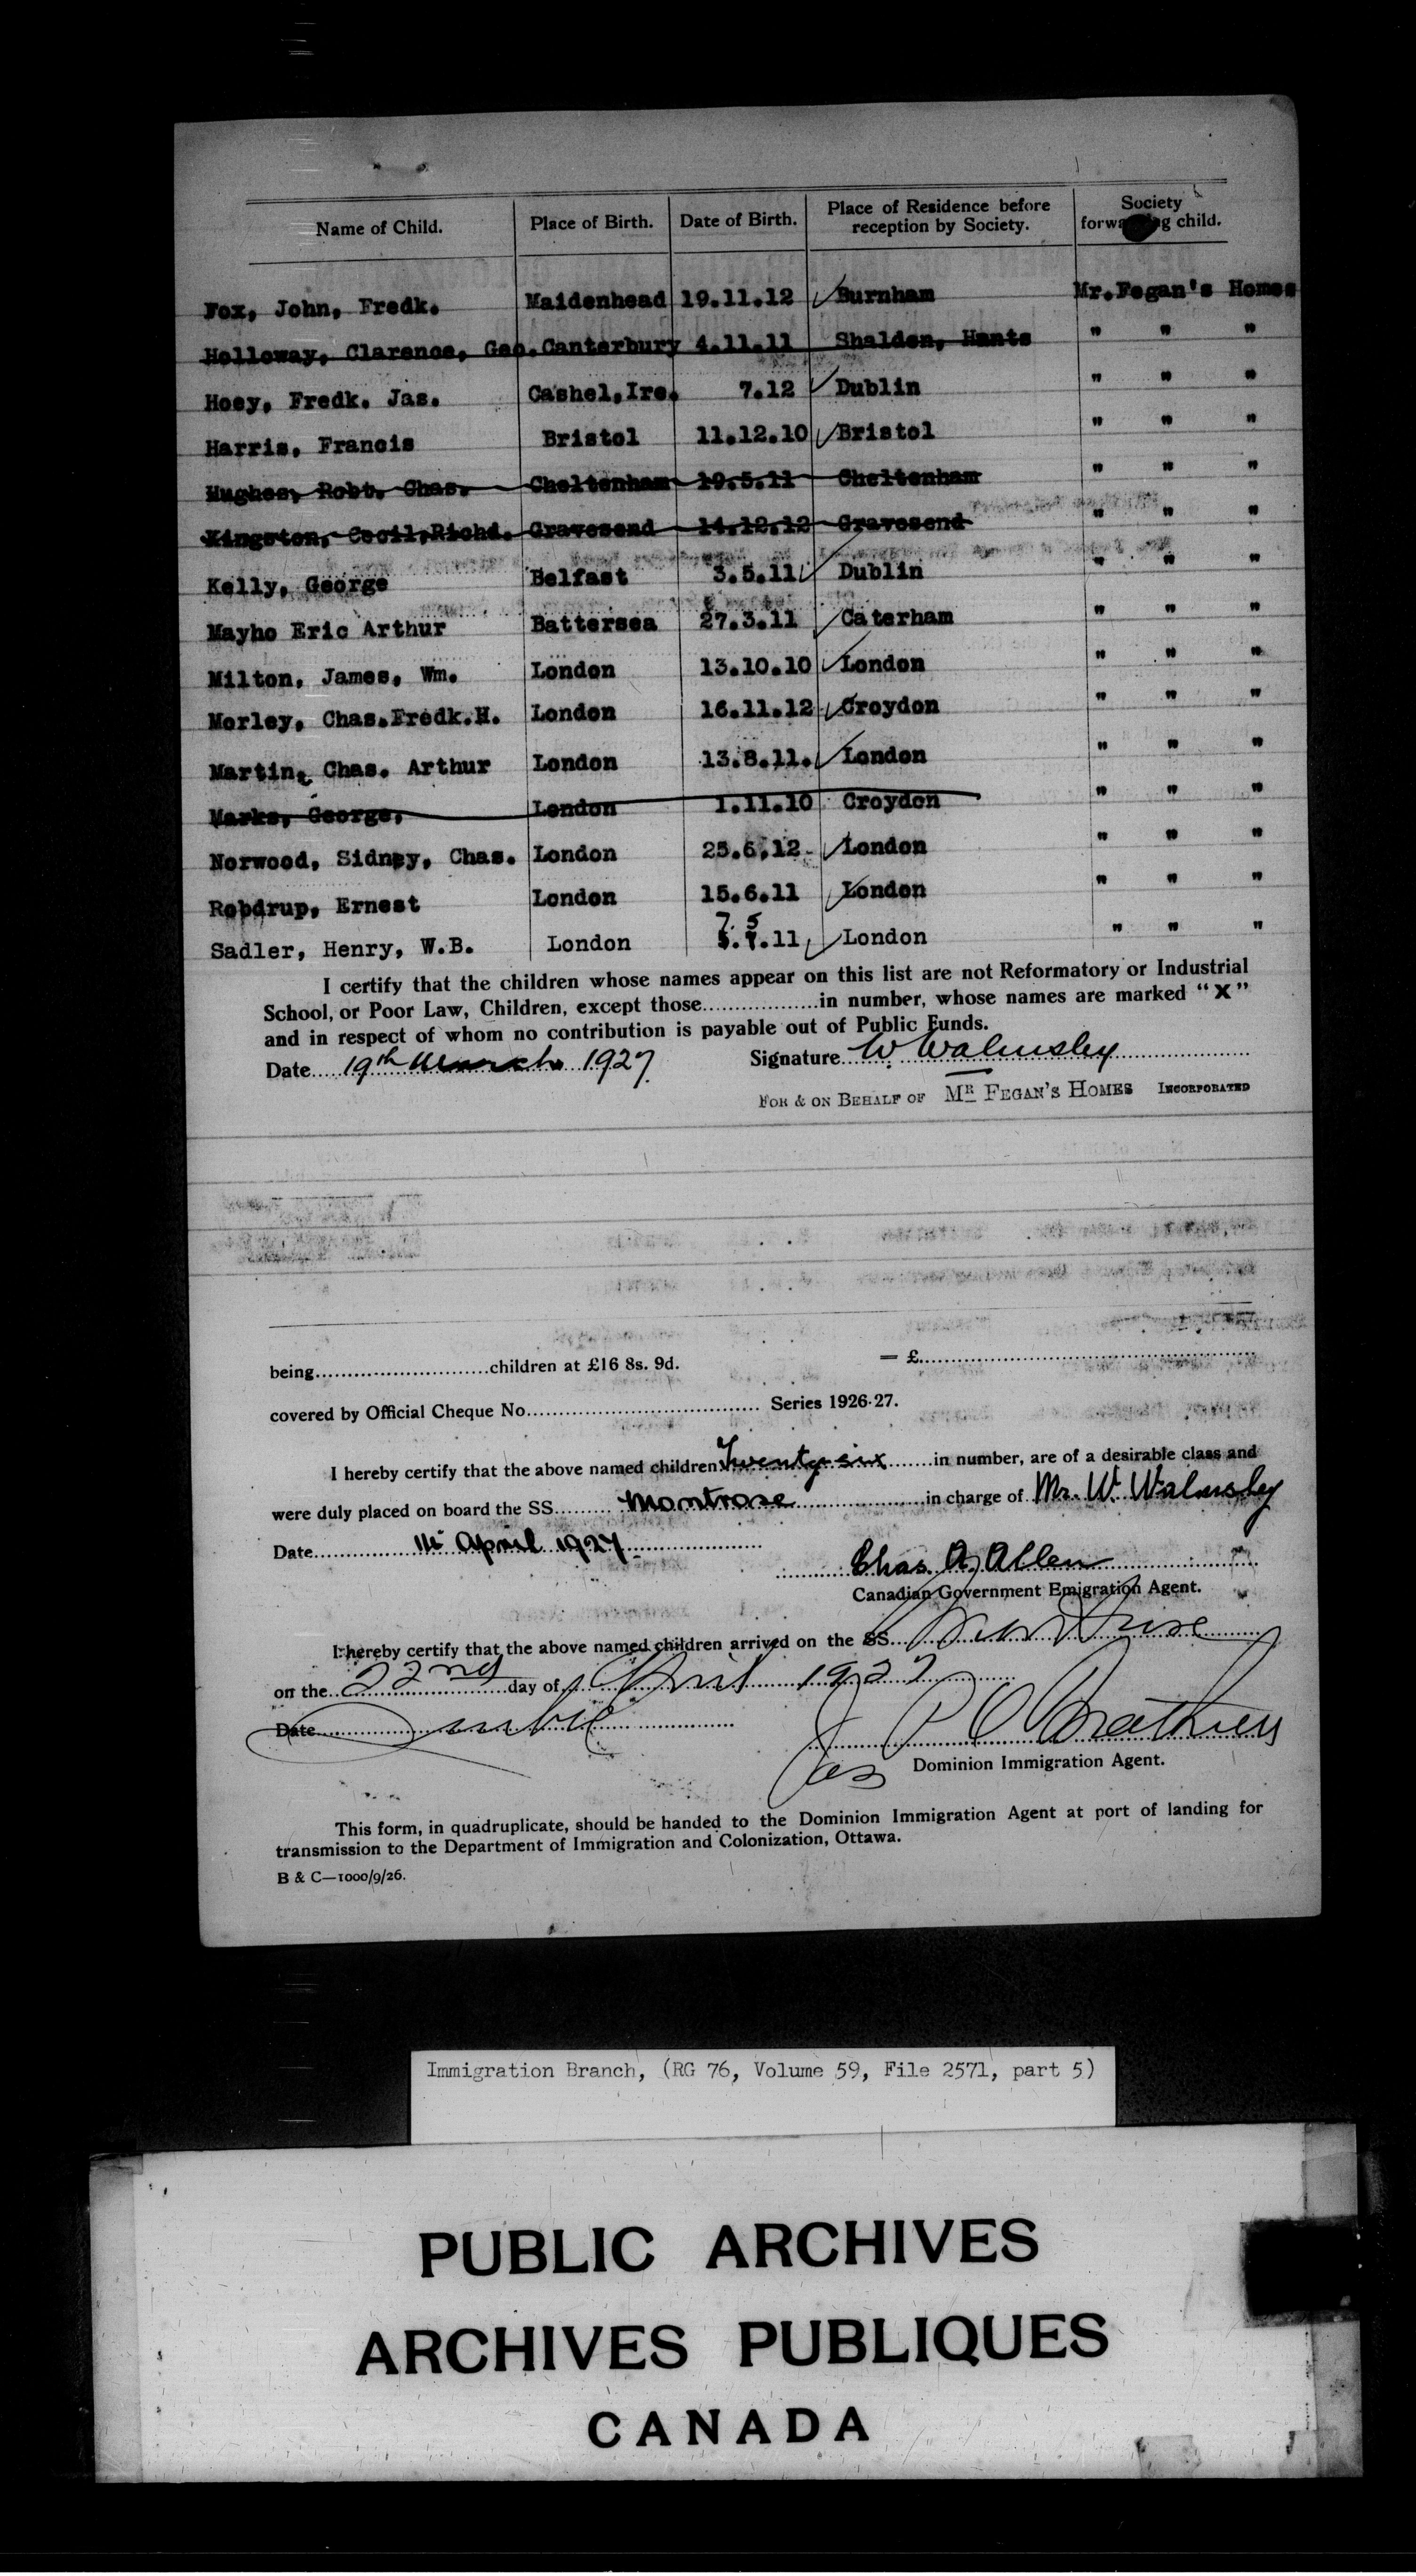 Name of Child. Place of Birth. Date of Birth. Place of Residence before reception by Society. Society forwarding child.
Fox, John, Fredk. Maidenhead 19.11.12 Burnham Mr.Fegan's Homes
Holloway, Clarence, Geo. Canterbury 4.11.11 Shalden, Hants " " "
Hoey, Fredk. Jas. Cashel,Ire. 7.12 Dublin " " "
Harris, Francis Bristol 11.12.10 Bristol " " "
Hughes, Robt. Chas. Cheltenham 19.5.11 Cheltenham " " "
Kingston, Cecil,Richd. Gravesend 14.12.12 Gravesend " " "
Kelly, George Belfast 3.5.11 Dublin " " "
Mayho Eric Arthur Battersea 27.3.11 Caterham " " "
Milton, James, Wm. London 13.10.10 London " " "
Morley, Chas.Fredk.H. London 16.11.12 Croydon " " "
Martin, Chas. Arthur London 13.8.11. London " " "
Marks, George, London 1.11.10 Croydon " " "
Norwood, Sidney, Chas. London 25.6.12 London " " "
Robdrup, Ernest London 15.6.11 London " " "
7. 5
Sadler, Henry, W.B. London 11 London " " "
I certify that the children whose names appear on this list are not Reformatory or Industrial
School, or Poor Law, Children, except those.................in number, whose names are marked "X"
and in respect of whom no contribution is payable out of Public Funds.
Date.....19th March 1927 Signature W. Walmsley
FOR & ON BEHALF OF MR FEGAN'S HOMES INCORPORATED
being...........................children at £16 8s. 9d. = £
covered by Official Cheque No.................................... Series 1926-27.
I hereby certify that the above named children Twenty six in number, are of a desirable class and
were duly placed on board the SS. Montrose in charge of Mr. W. Walmsley
Date April 1927
Chas. A. Allen
Canadian Government Emigration Agent.
I hereby certify that the above named children arrived on the SS. Montrose
on the 22nd day of April 1927
Date
Jas
Dominion Immigration Agent.
This form, in quadruplicate, should be handed to the Dominion Immigration Agent at port of landing for
transmission to the Department of Immigration and Colonization, Ottawa.
B & C—1000/9/26.
Immigration Branch, (RG 76, Volume 59, File 2571, part 5)
PUBLIC ARCHIVES
ARCHIVES PUBLIQUES
CANADA